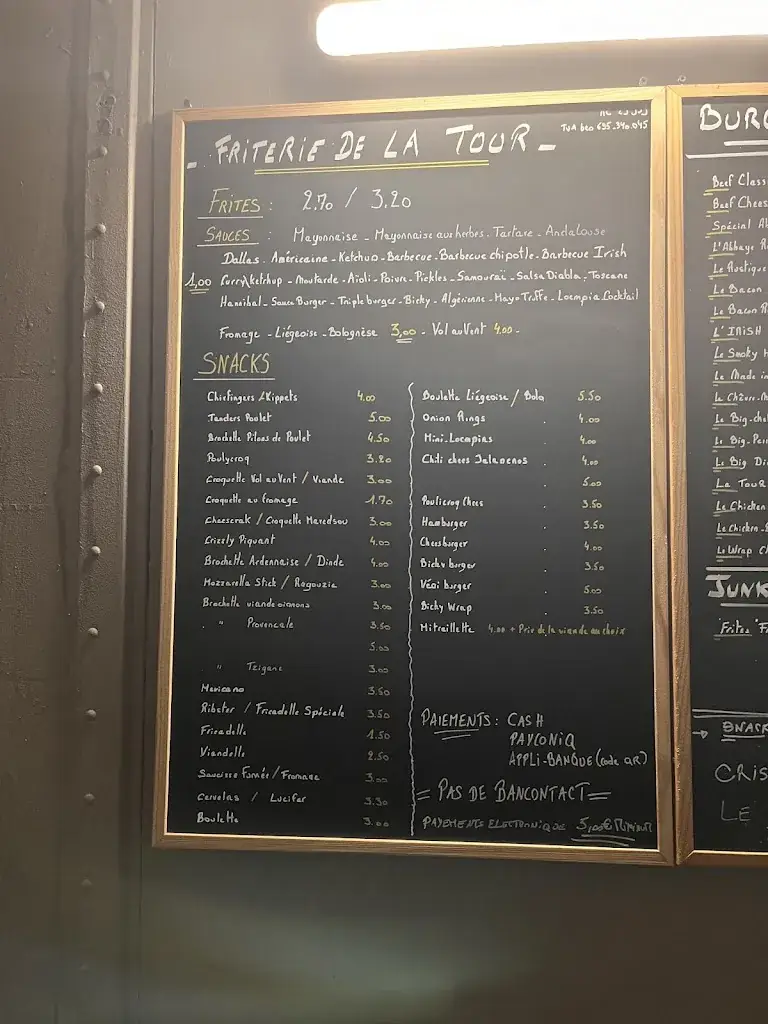 - FRITERIE DE LA TOUR -
TVA BE0 635.340.045
FRITES : 2.70 / 3.20
SAUCES : Mayonnaise - Mayonnaise aux herbes - Tartare - Andalouse
Dallas - Américaine - Ketchup - Barbecue - Barbecue chipotle - Barbecue Irish
1,00 Curry/ketchup - Moutarde - Aïoli - Poivre - Pickles - Samouraï - Salsa Diabla - Toscane
Hannibal - Sauce Burger - Triple burger - Bicky - Algérienne - Mayo Truffe - Loempia Cocktail
Fromage - Liégeoise - Bolognèse 3,00 - Vol au Vent 4.00 -
SNACKS
Chixfingers / Kippets 4.00
Tenders Poulet 5.00
Brochette Pilons de Poulet 4.50
Poulycroq 3.20
Croquette Vol au Vent / Viande 3.00
Croquette au fromage 1.70
Cheesecrak / Croquette Maredsou 3.00
Crizzly Piquant 4.00
Brochette Ardennaise / Dinde 4.00
Mozzarella Stick / Ragouzis 3.00
Brochette viande oignons 3.00
. " Provencale 3.50
5.00
. " Tzigane 3.00
Mexicano 3.50
Ribster / Fricadelle Spéciale 3.50
Fricadelle 1.50
Viandelle 2.50
Saucisse Fumée / Fromage 3.00
Cervelas / Lucifer 3.30
Boulette 3.00
Boulette Liégeoise / Bolo 5.50
Onion Rings . 4.00
Mini-Loempias . 4.00
Chili chees Jalapenos . 4.00
. 5.00
Poulicroq Chees . 3.50
Hamburger . 3.50
Cheesburger . 4.00
Bicky burger . 3.50
Végi burger . 5.00
Bicky Wrap . 3.50
Mitraillette 4.00 + Prix de la viande au choix
PAIEMENTS : CASH
PAYCONIQ
APPLI-BANQUE (code QR)
= PAS DE BANCONTACT =
PAYEMENTS ELECTRONIQUE 5,00€ MINIMUM
BURG
Beef Class
Beef Chees
Spécial Ab
L'Abbaye R
Le Rustique
Le Bacon
Le Bacon R
L'IRISH
Le Smoky H
Le Made in
Le Chèvre-M
Le Big-che
Le Big-Pe
Le Big Di
La TOUR
Le Chicken
Le Chicken-B
Le Wrap C
JUNK
Frites "F
→ SNACK
CRIS
LE